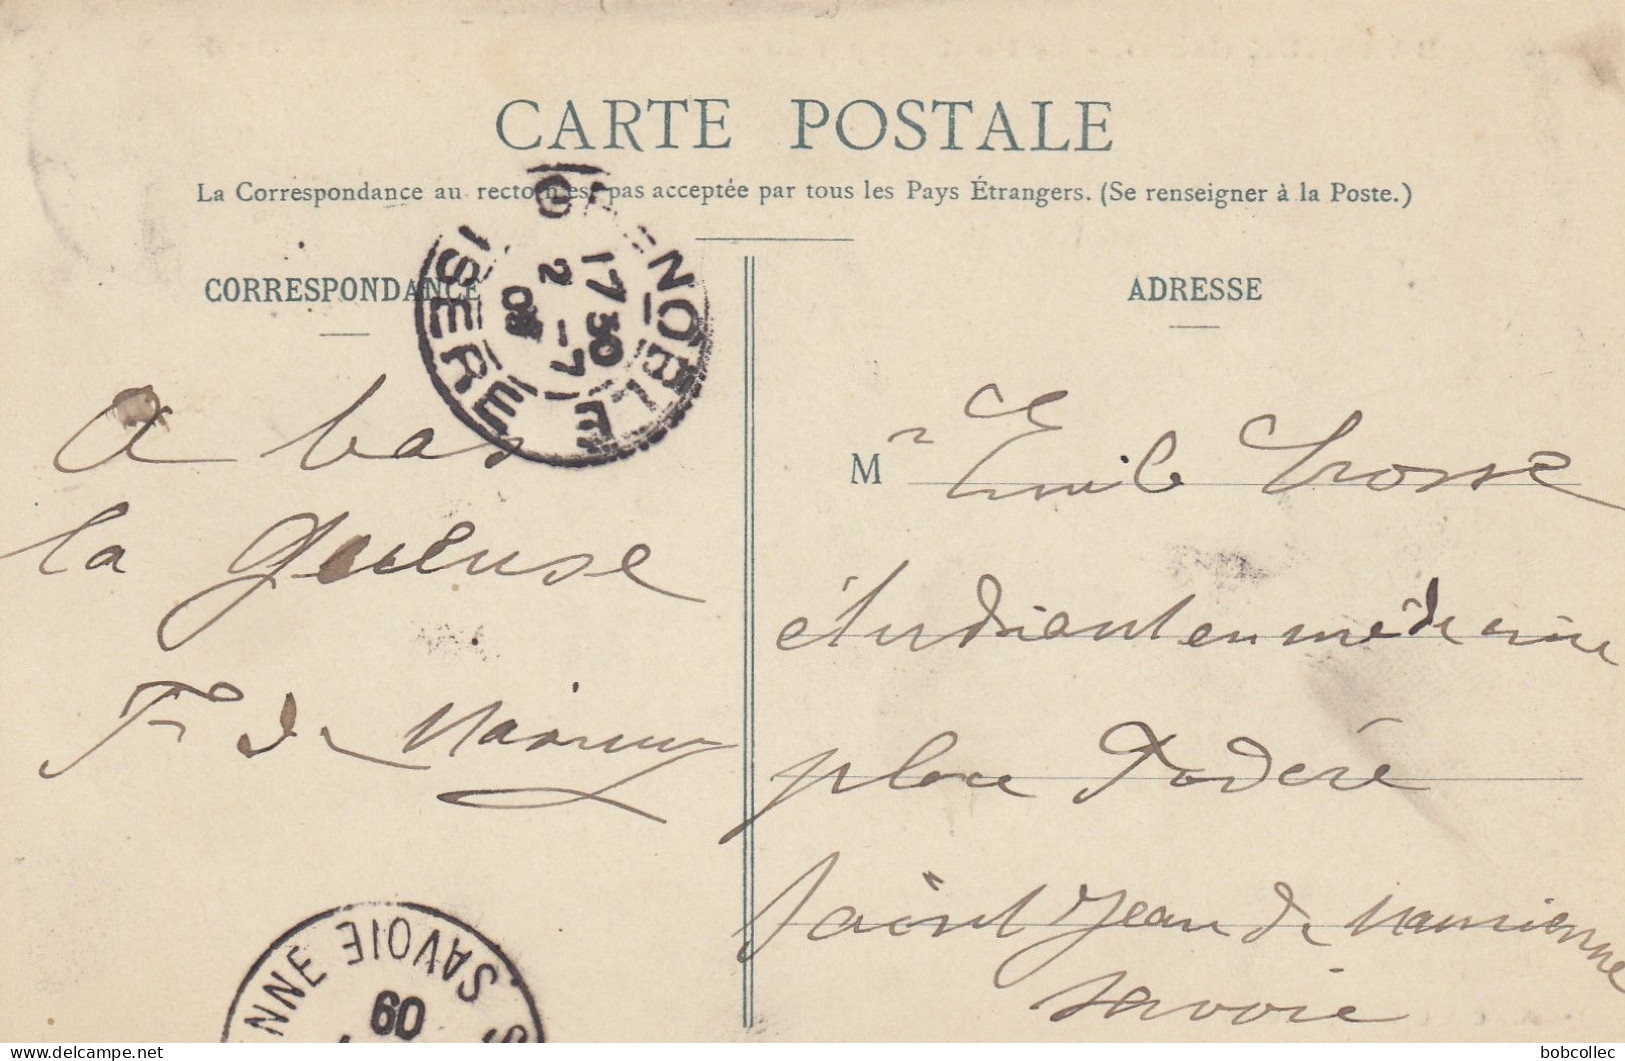 CARTE POSTALE
La Correspondance au recto n'est pas acceptée par tous les Pays Étrangers. (Se renseigner à la Poste.)
CORRESPONDANCE
ADRESSE
GRENOBLE
ISERE
17 30
2 -7
09
A bas
la gueuse
F de
Mr Emile Crosse
étudiant en médecine
place Fodéré
Saint Jean de Maurienne
Savoie
NNE SAVOIE S
09
bobcollec